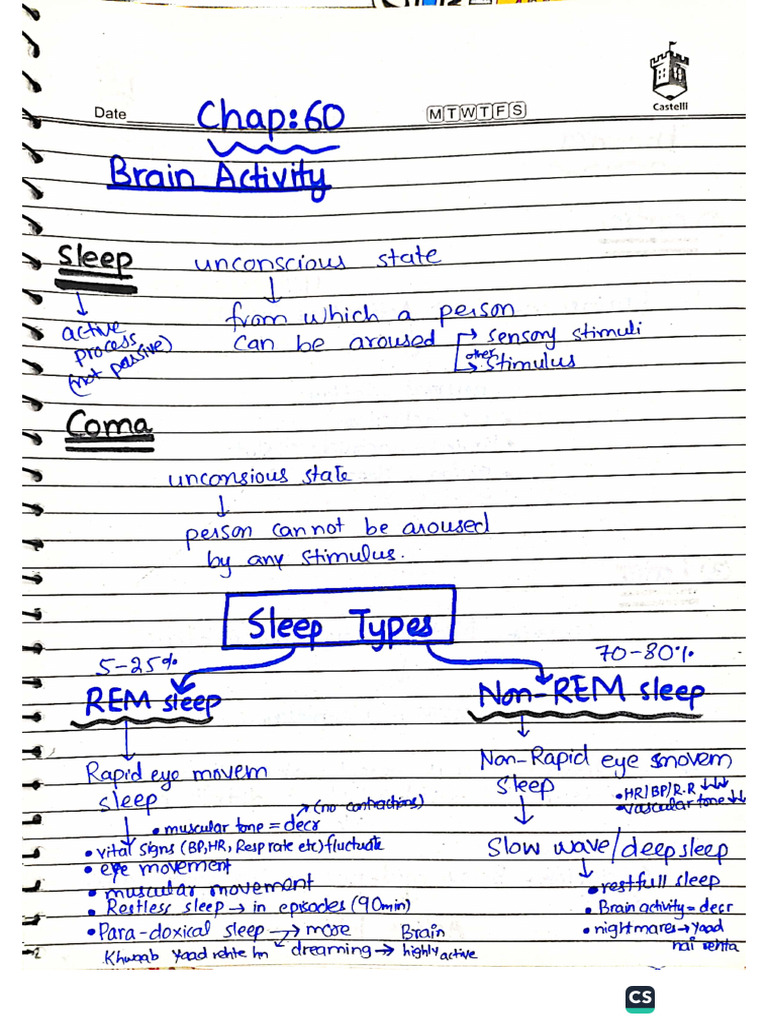 Date
Chap:60
M T W T F S
Castelli
Brain Activity
Sleep unconscious state
↓ ↓
active process (not passive)
from which a person
can be aroused → sensory stimuli
other → stimulus
Coma
unconsious state
↓
person cannot be aroused
by any stimulus.
Sleep Types
5-25%
70-80%
REM sleep
Non-REM sleep
Rapid eye movem
sleep
Non-Rapid eye movem
sleep
• HR/BP/R.R ↓↓↓
• vascular tone ↓↓
• muscular tone = decr → (no contractions)
• vital signs (BP,HR, Resp rate etc) fluctuate
• eye movement
• muscular movement
• Restless sleep → in episodes (90min)
• Para-doxical sleep → more dreaming → Brain highly active
Khwaab yaad rehte hn
Slow wave/deep sleep
• restfull sleep
• Brain activity = decr
• nightmares → yaad
nai rehta
CS